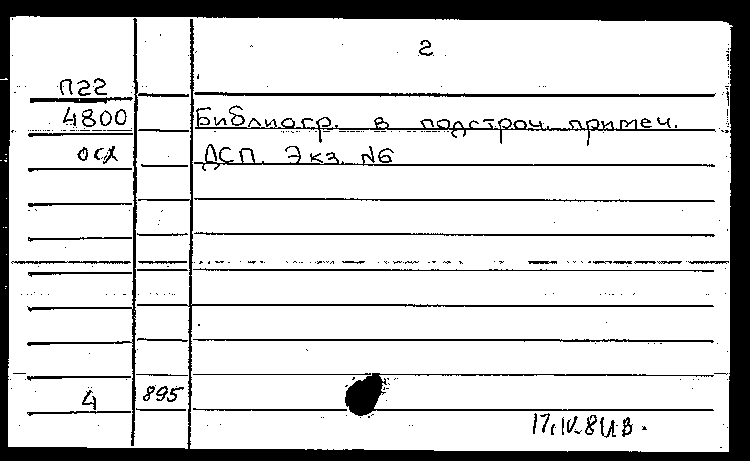 2
П22
4800 Библиогр. в подстроч. примеч.
осх ДСП. Экз. N6
4 895
17.IV.81